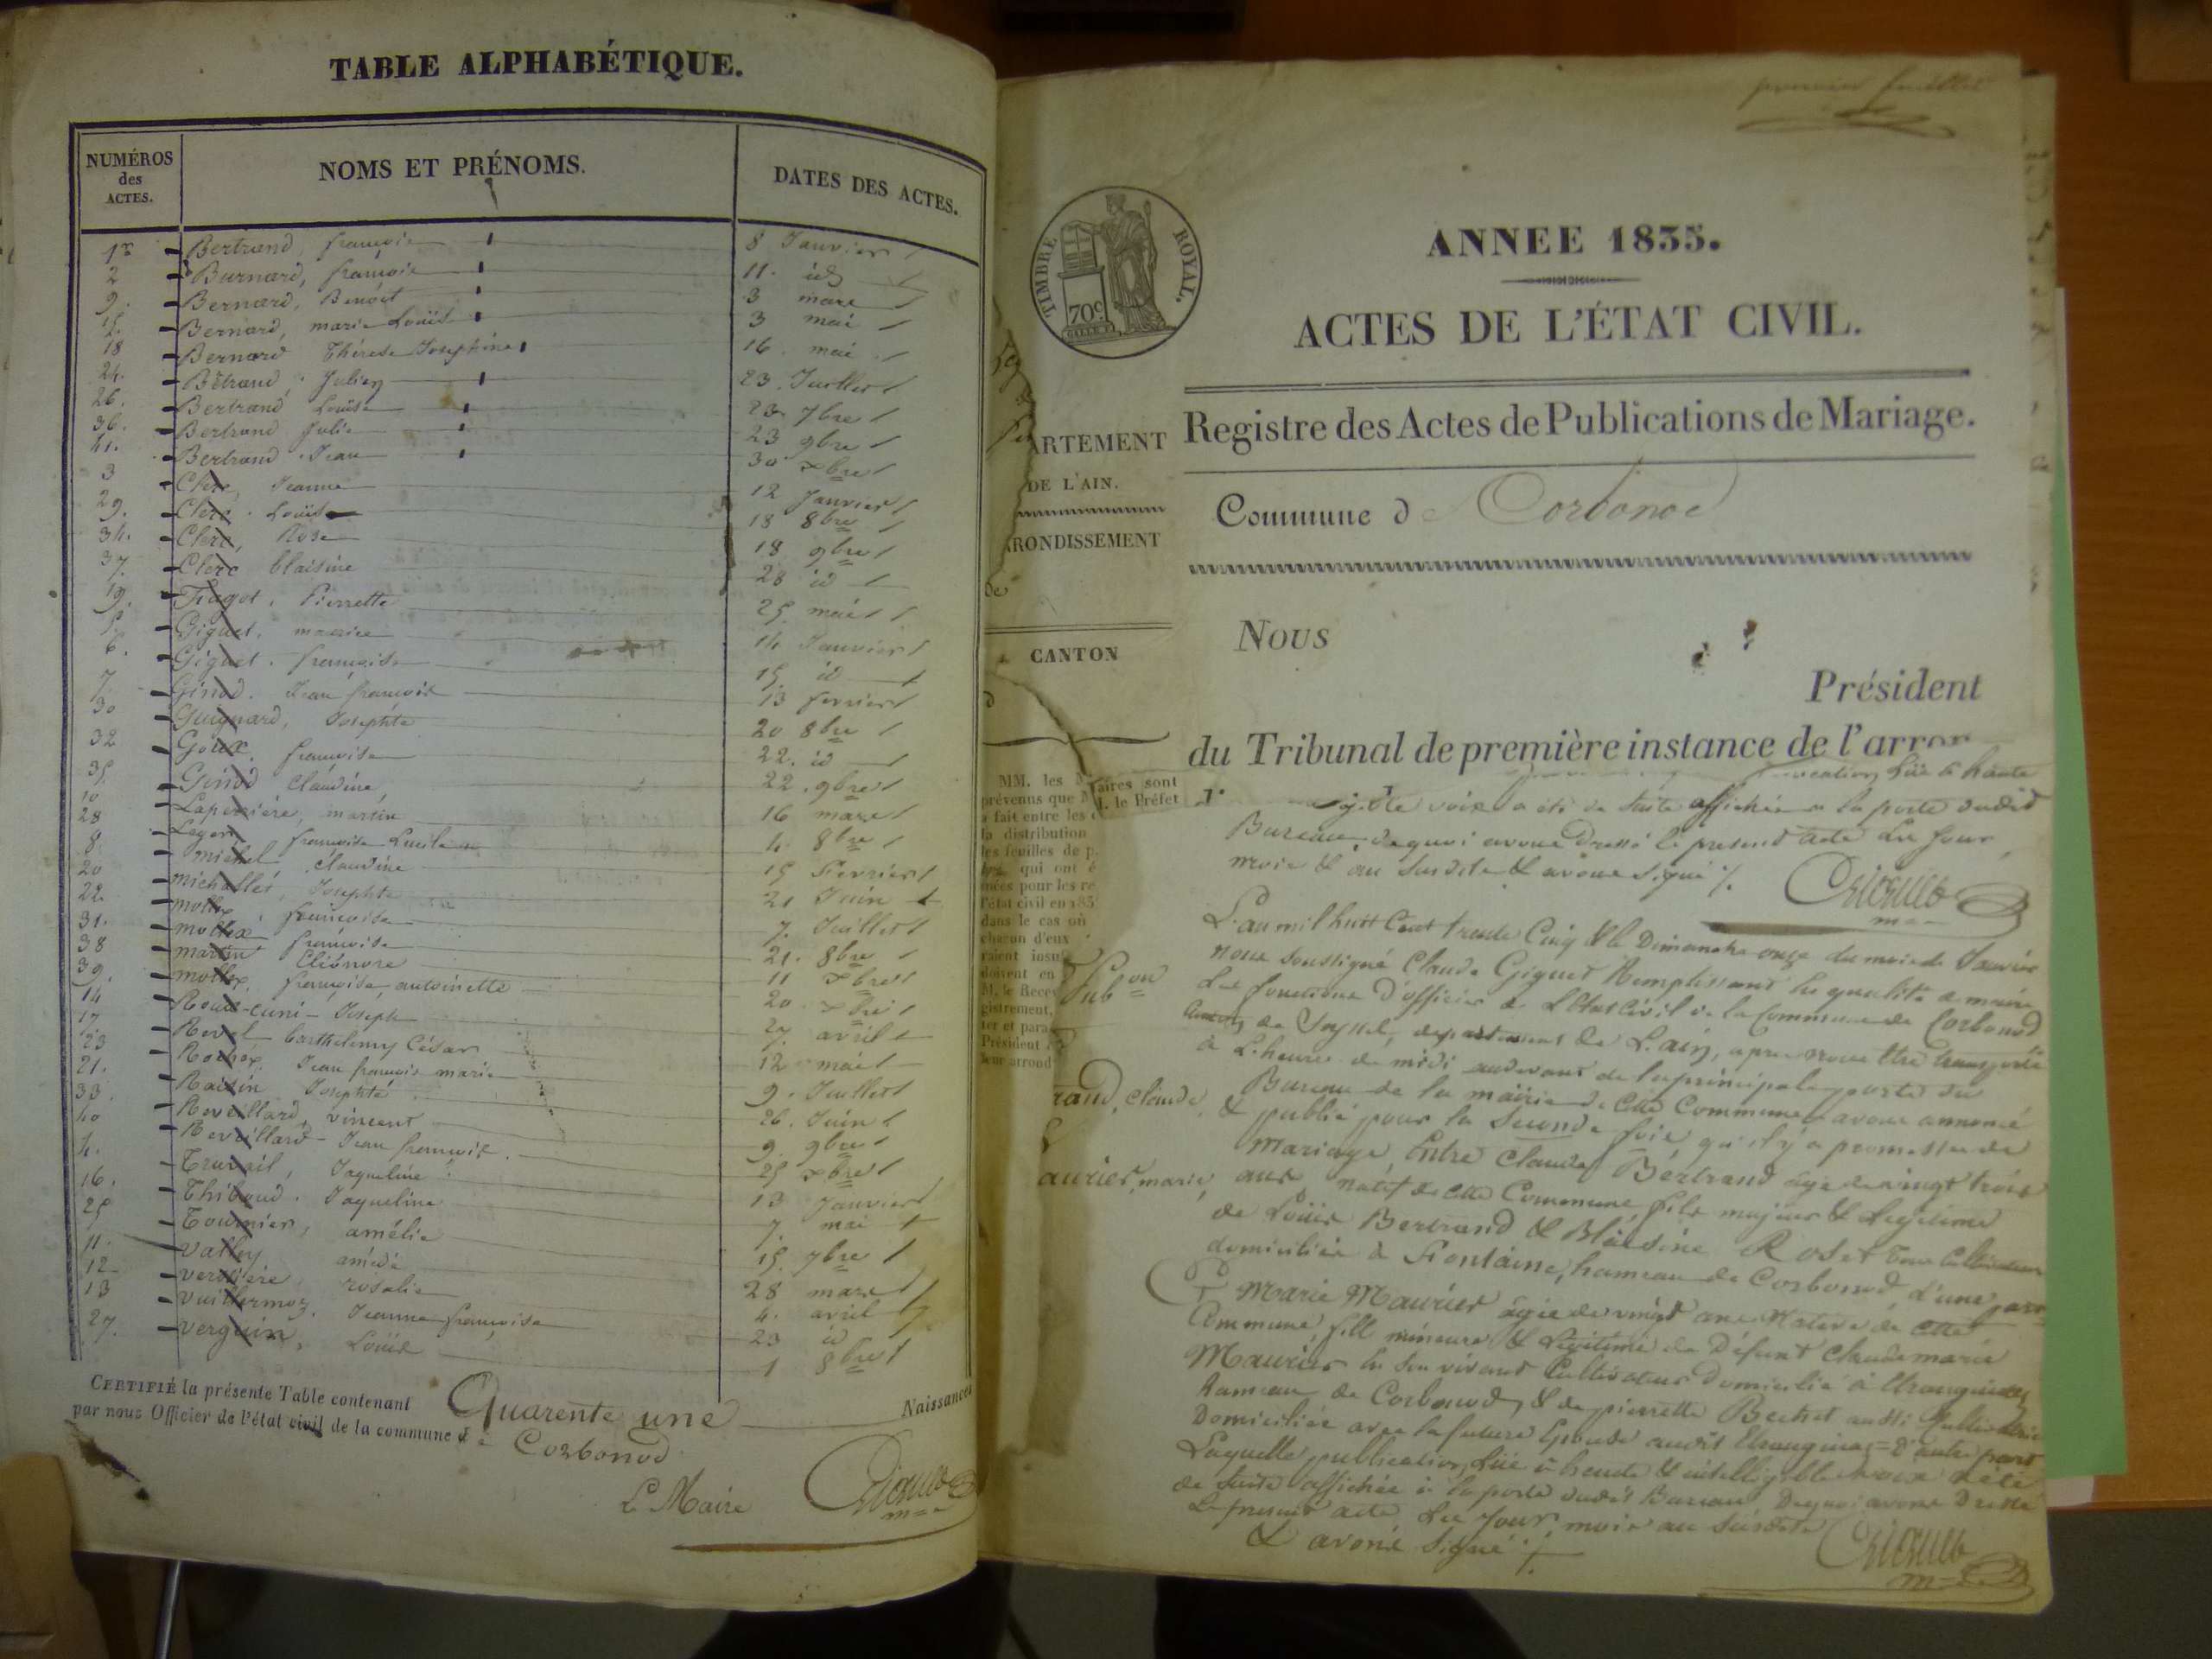 TABLE ALPHABÉTIQUE.
NUMÉROS des ACTES.
NOMS ET PRÉNOMS.
DATES DES ACTES.
1er Bertrand, françois 8 Janvier
2 Burnard, françois 11. id
9. Bernard, Benoit 3 mars
15. Bernard, marie Louise 3 mai
18 Bernard Thérese Josephine 16. mai
24. Bétrand, Julien 23. Juillet
26. Bertrand Louise 23 7bre
36. Bertrand Julie 23 9bre
41. Bertrand Jean 30 xbre
3 Clerc, Jeanne 12 Janvier
29. Clerc Louise 18 8bre
34. Clerc, Rose 18 9bre
37. Clerc blaisine 28 id
19. Pierrette 25 mai
5. Giguet, maurice 14 Janvier
6. Giguet. françoise 15 id
7. Ginod. Jean françois 13 fevrier
30 Guignard, Josephte 20 8bre
32 Goux françoise 22. id
35 Ginod Claudine, 22. 9bre
10 Laperrière, martin 16 mars
28 Leger, françoise Lucile 4. 8bre
8. michel Claudine 15 Fevrier
20 michallet, Josephte 21 Juin
22. mollex françoise 7. Juillet
31. mollex françoise 21. 8bre
38 martin Eléonore 11 xbre
39. mollex, françoise, antoinette 20 xbre
14 Roux-cuni-Joseph 27 avril
17 Revel barthelemy César 12 mai
23 Rochex, Jean françois marie 9. Juillet
21. Raisin Josephte 26. Juin
33. Reveillard, vincent 9. 9bre
40 Reveillard-Jean françois. 25 xbre
4. Travail, Jaqueline 13 Janvier
16. Thiboud. Jaqueline 7. mai
25 Tournier, amélie 15. 7bre
11. Valley amédé 28 mars
12 Verdière rosalie 4. avril
13 Vuillermoz. Jeanne françoise 23 id
27. Verguin, Louise 1 8bre
CERTIFIÉ la présente Table contenant Quarente une Naissances
par nous Officier de l'état civil de la commune d e Corbonod
Le Maire
premier feuillet
TIMBRE ROYAL.
70c.
ANNEE 1835.
ACTES DE L'ÉTAT CIVIL.
Registre des Actes de Publications de Mariage.
ARTEMENT
DE L'AIN.
Commune d e Corbonod
RONDISSEMENT
de
Nous
CANTON
Président
du Tribunal de première instance de l'arron
MM. les
prévenus que
a fait entre les
la distribution
les feuilles de p
qui ont é
nées pour les re
l'état civil en 183
dans le cas où
chacun d'eux
raient insuf
doivent en
M. le Recev
gistrement,
ter et para
Président
leur arrond
faires sont
M. le Préfet
publication, lüe à haute
voix a été de suite affichée a la porte dudit
Bureau, dequoi avons Dressé le présent acte Les jour,
mois & an susdits & avons signé ./.
m
L'an mil huit Cent trente Cinq & le Dimanche onze du mois de Janvier
nous soussigné Claude Giguet Remplissant la qualité a maire
Les fonctions D'officier de L'Etat Civil de la Commune de Corbonod
Canton de Seyssel, departement de L'ain, apres nous être transporté
à L'heure de midi audevant de la principale porte du
Bureau de la mairie de cette Commune avons annoncé
& publié pour la seconde fois qu'il y a promesse de
Mariage Entre Claude Bertrand agé de vingt trois
ans natif de cette Commune, fils majeur & Legitime
de Loüis Bertrand & Blaisine Roset tous Cultivateurs
domiciliés à Fontaine, hameau de Corbonod, d'une part
Et Marie Maurier agée de vingt ans Native de cette
Commune, fille mineure & Legitime de Défunt Claude marie
Maurier lui son vivant Cultivateur Domicilié à Etranginaz
hameau de Corbonod, & de pierrette Bechet aussi Cultivatrice
Domiciliée avec la future Epouse audit Etranginaz = D'autre part
Laquelle publication, Lüe à haute & intelligible voix a été
de suite affichée à la porte dudit Bureau Dequoi avons Dressé
Le present acte Les jour, mois an susdits
& avons signé ./.
m
Pubon
rand, claude,
&
aurier, marie,